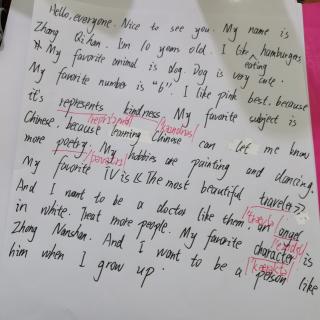 Hello, everyone. Nice to see you. My name is
Zhang Qihan. I'm 10 years old. I like hamburgers
eating
My favorite animal is dog. Dog is very cute.
My favorite number is "6". I like pink best. because
it's represents kindness. My favorite subject is
Chinese. because learning Chinese can let me know
more poetry. My hobbies are painting and dancing.
My favorite TV is 《The most beautiful travel》.
And I want to be a doctor like them. an angel
in white. Treat more people. My favorite character is
Zhang Nanshan. And I want to be a person like
him when I grow up.